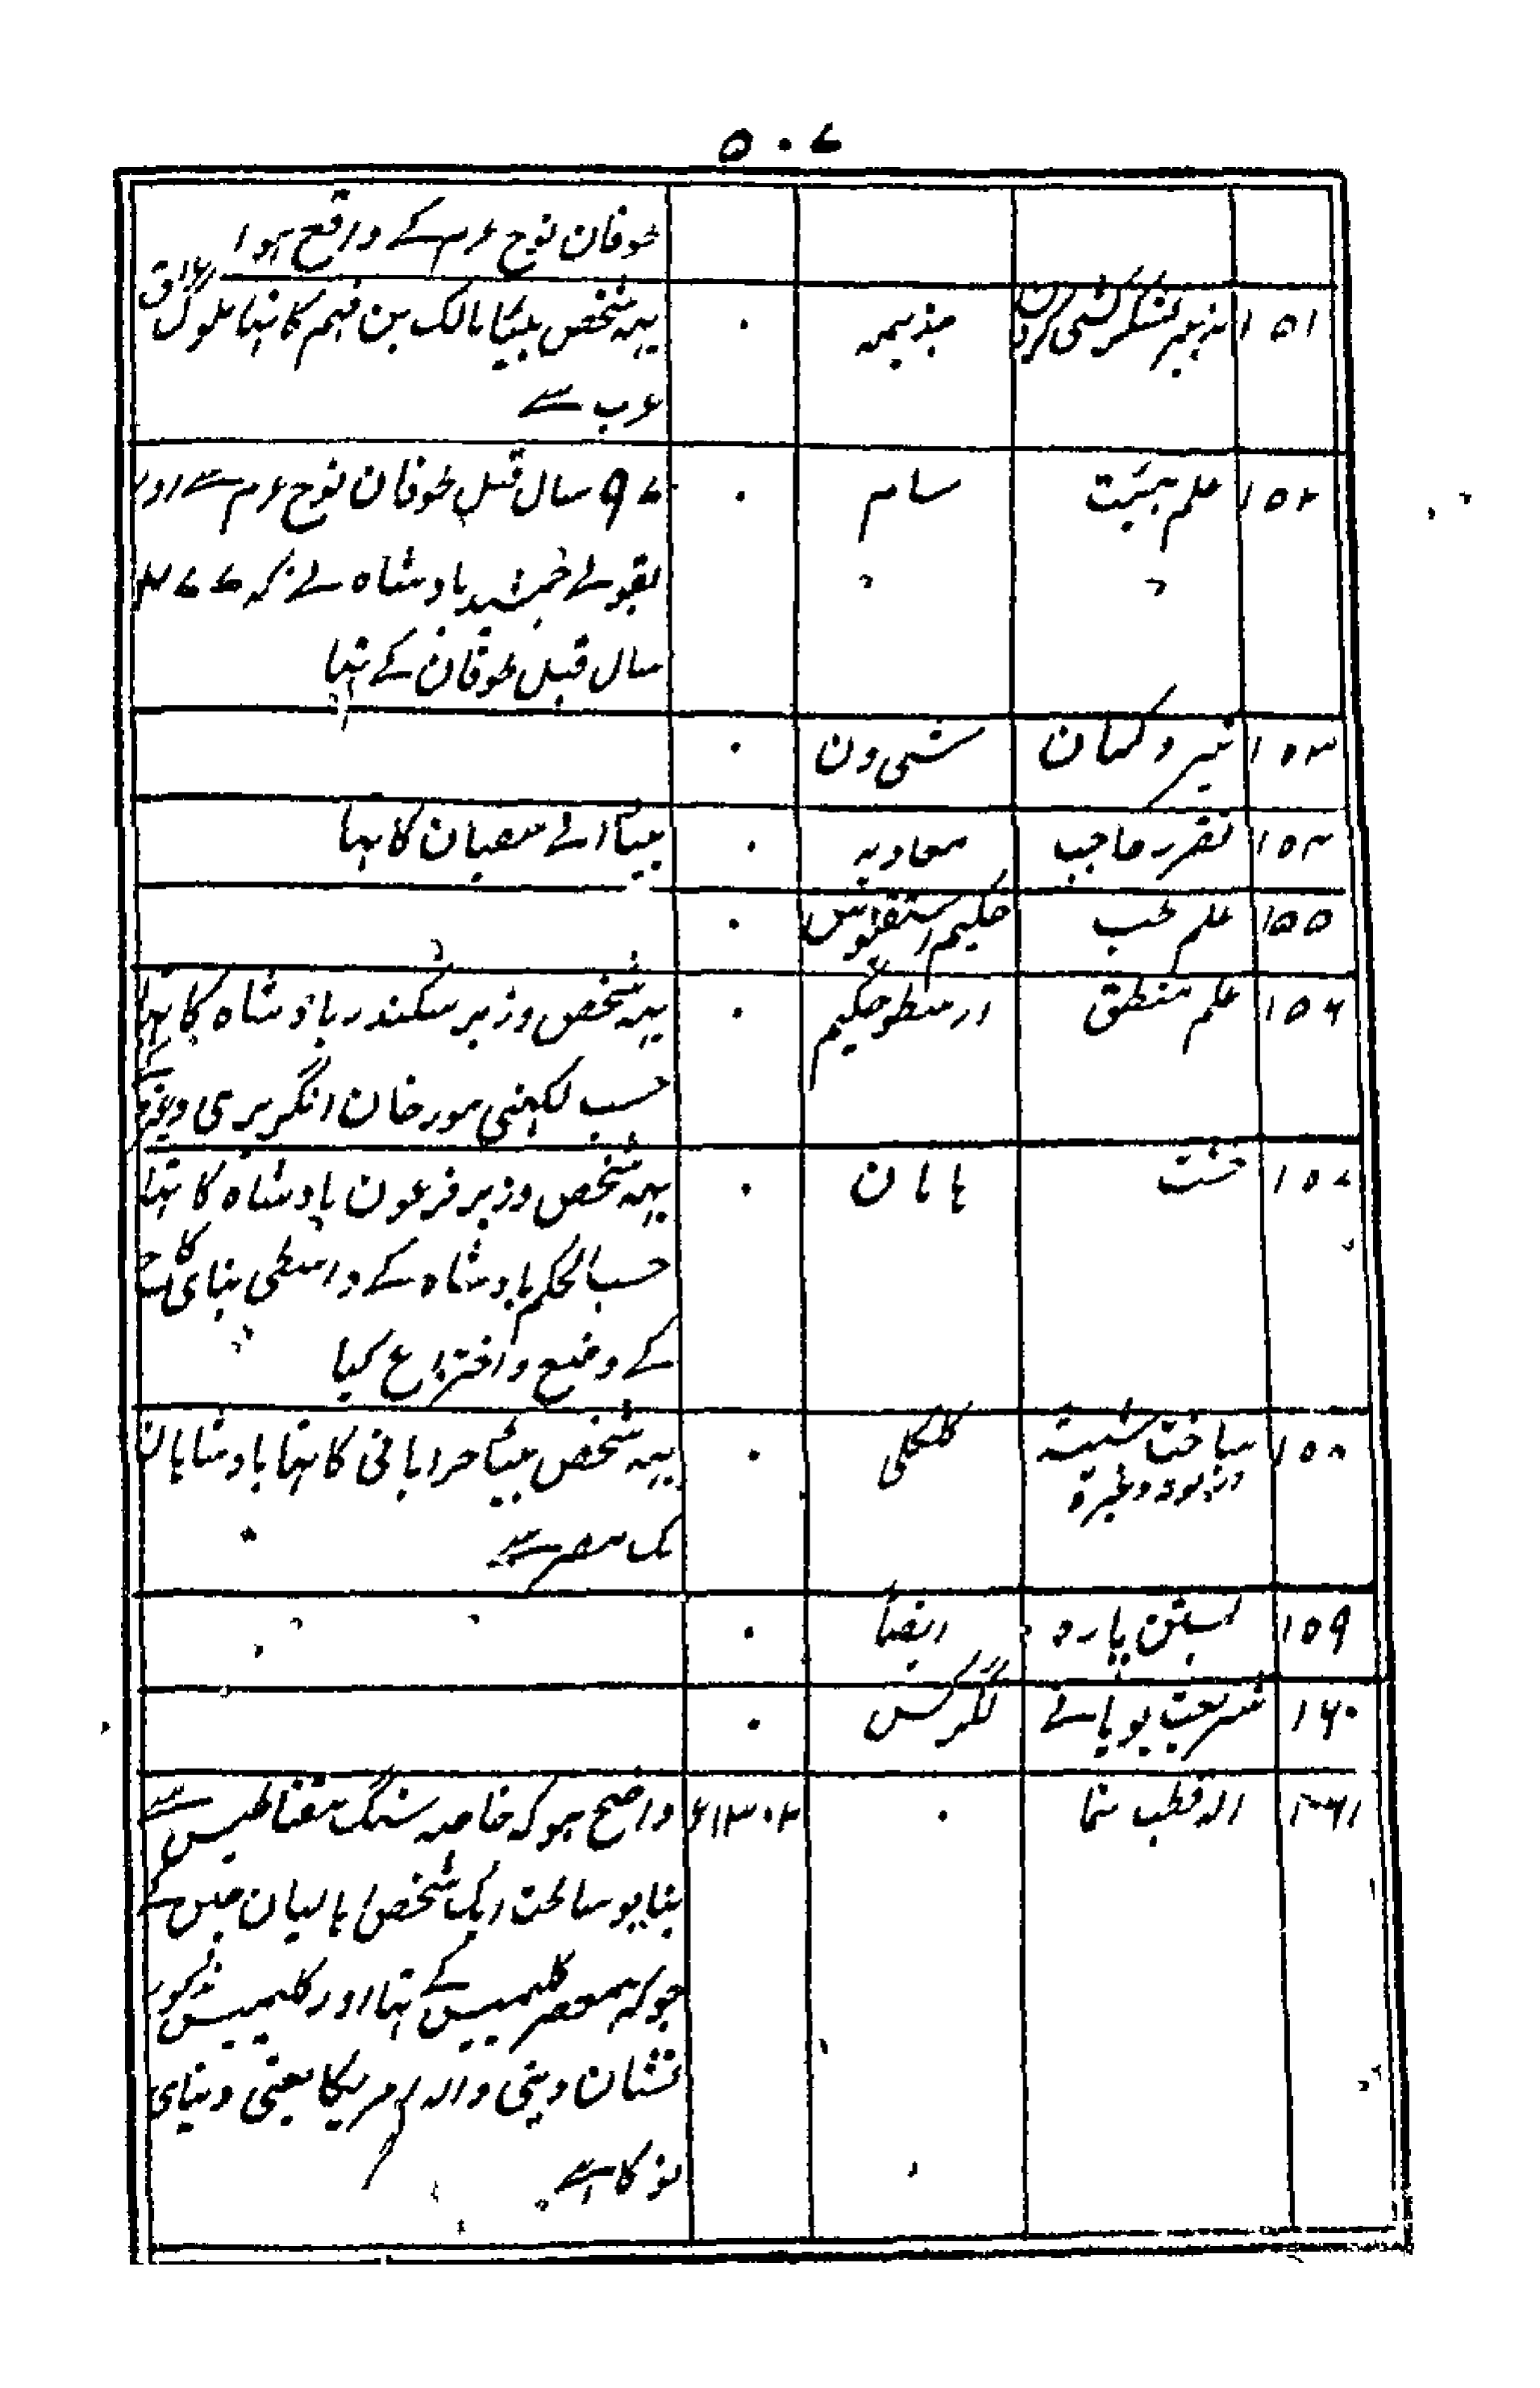 ۵۰۷
طوفان نوح عم کے واقع ہوا
۱۵۱ لشکر کشی کردن جذیمہ ۰ یہہ شخص بیٹا مالک بن فہم کا تہا ملوک عراق
عرب سے
۱۵۲ علم ہیئت سام ۰ ۹۷ سال قبل طوفان نوح عم سے اور
بقولے جمشید بادشاہ نے کہ ۳۷۷
سال قبل طوفان کے تہا
۱۵۳ تیر و کمان شی ون ۰
۱۵۴ تقرر حاجب معاویہ ۰ بیٹا ابی سفیان کا تہا
۱۵۵ علم طب حکیم اسقلیوس ۰
۱۵۶ علم منطق ارسطو حکیم ۰ یہہ شخص وزیر سکندر بادشاہ کا تہا
حسب لکہنی مورخان انگریزی وغیرہ
۱۵۷ خشت ہامان ۰ یہہ شخص وزیر فرعون بادشاہ کا تہا
حسب الحکم بادشاہ کے واسطی بنای کاخ
کے وضع و اختراع کیا
۱۵۸ ساخت شیشہ کلکلی ۰ یہہ شخص بیٹا حرابانی کا تہا بادشاہان
ملک مصر سے
۱۵۹ بستن پارہ ایضا ۰
۱۶۰ شریعت یونانے لگرکس ۰
۱۶۱ الہ قطب نما ۰ ۱۳۰۲ء واضح ہو کہ خاصہ سنگ مقناطیس سے
بنایو ساخت ایک شخص اہالیان چین کے
جو کہ ہمعصر کلمبیس کے تہا اور کلمبیس مذکور
نشان دینی والہ امریکا یعنی دنیای
نو کا ہے